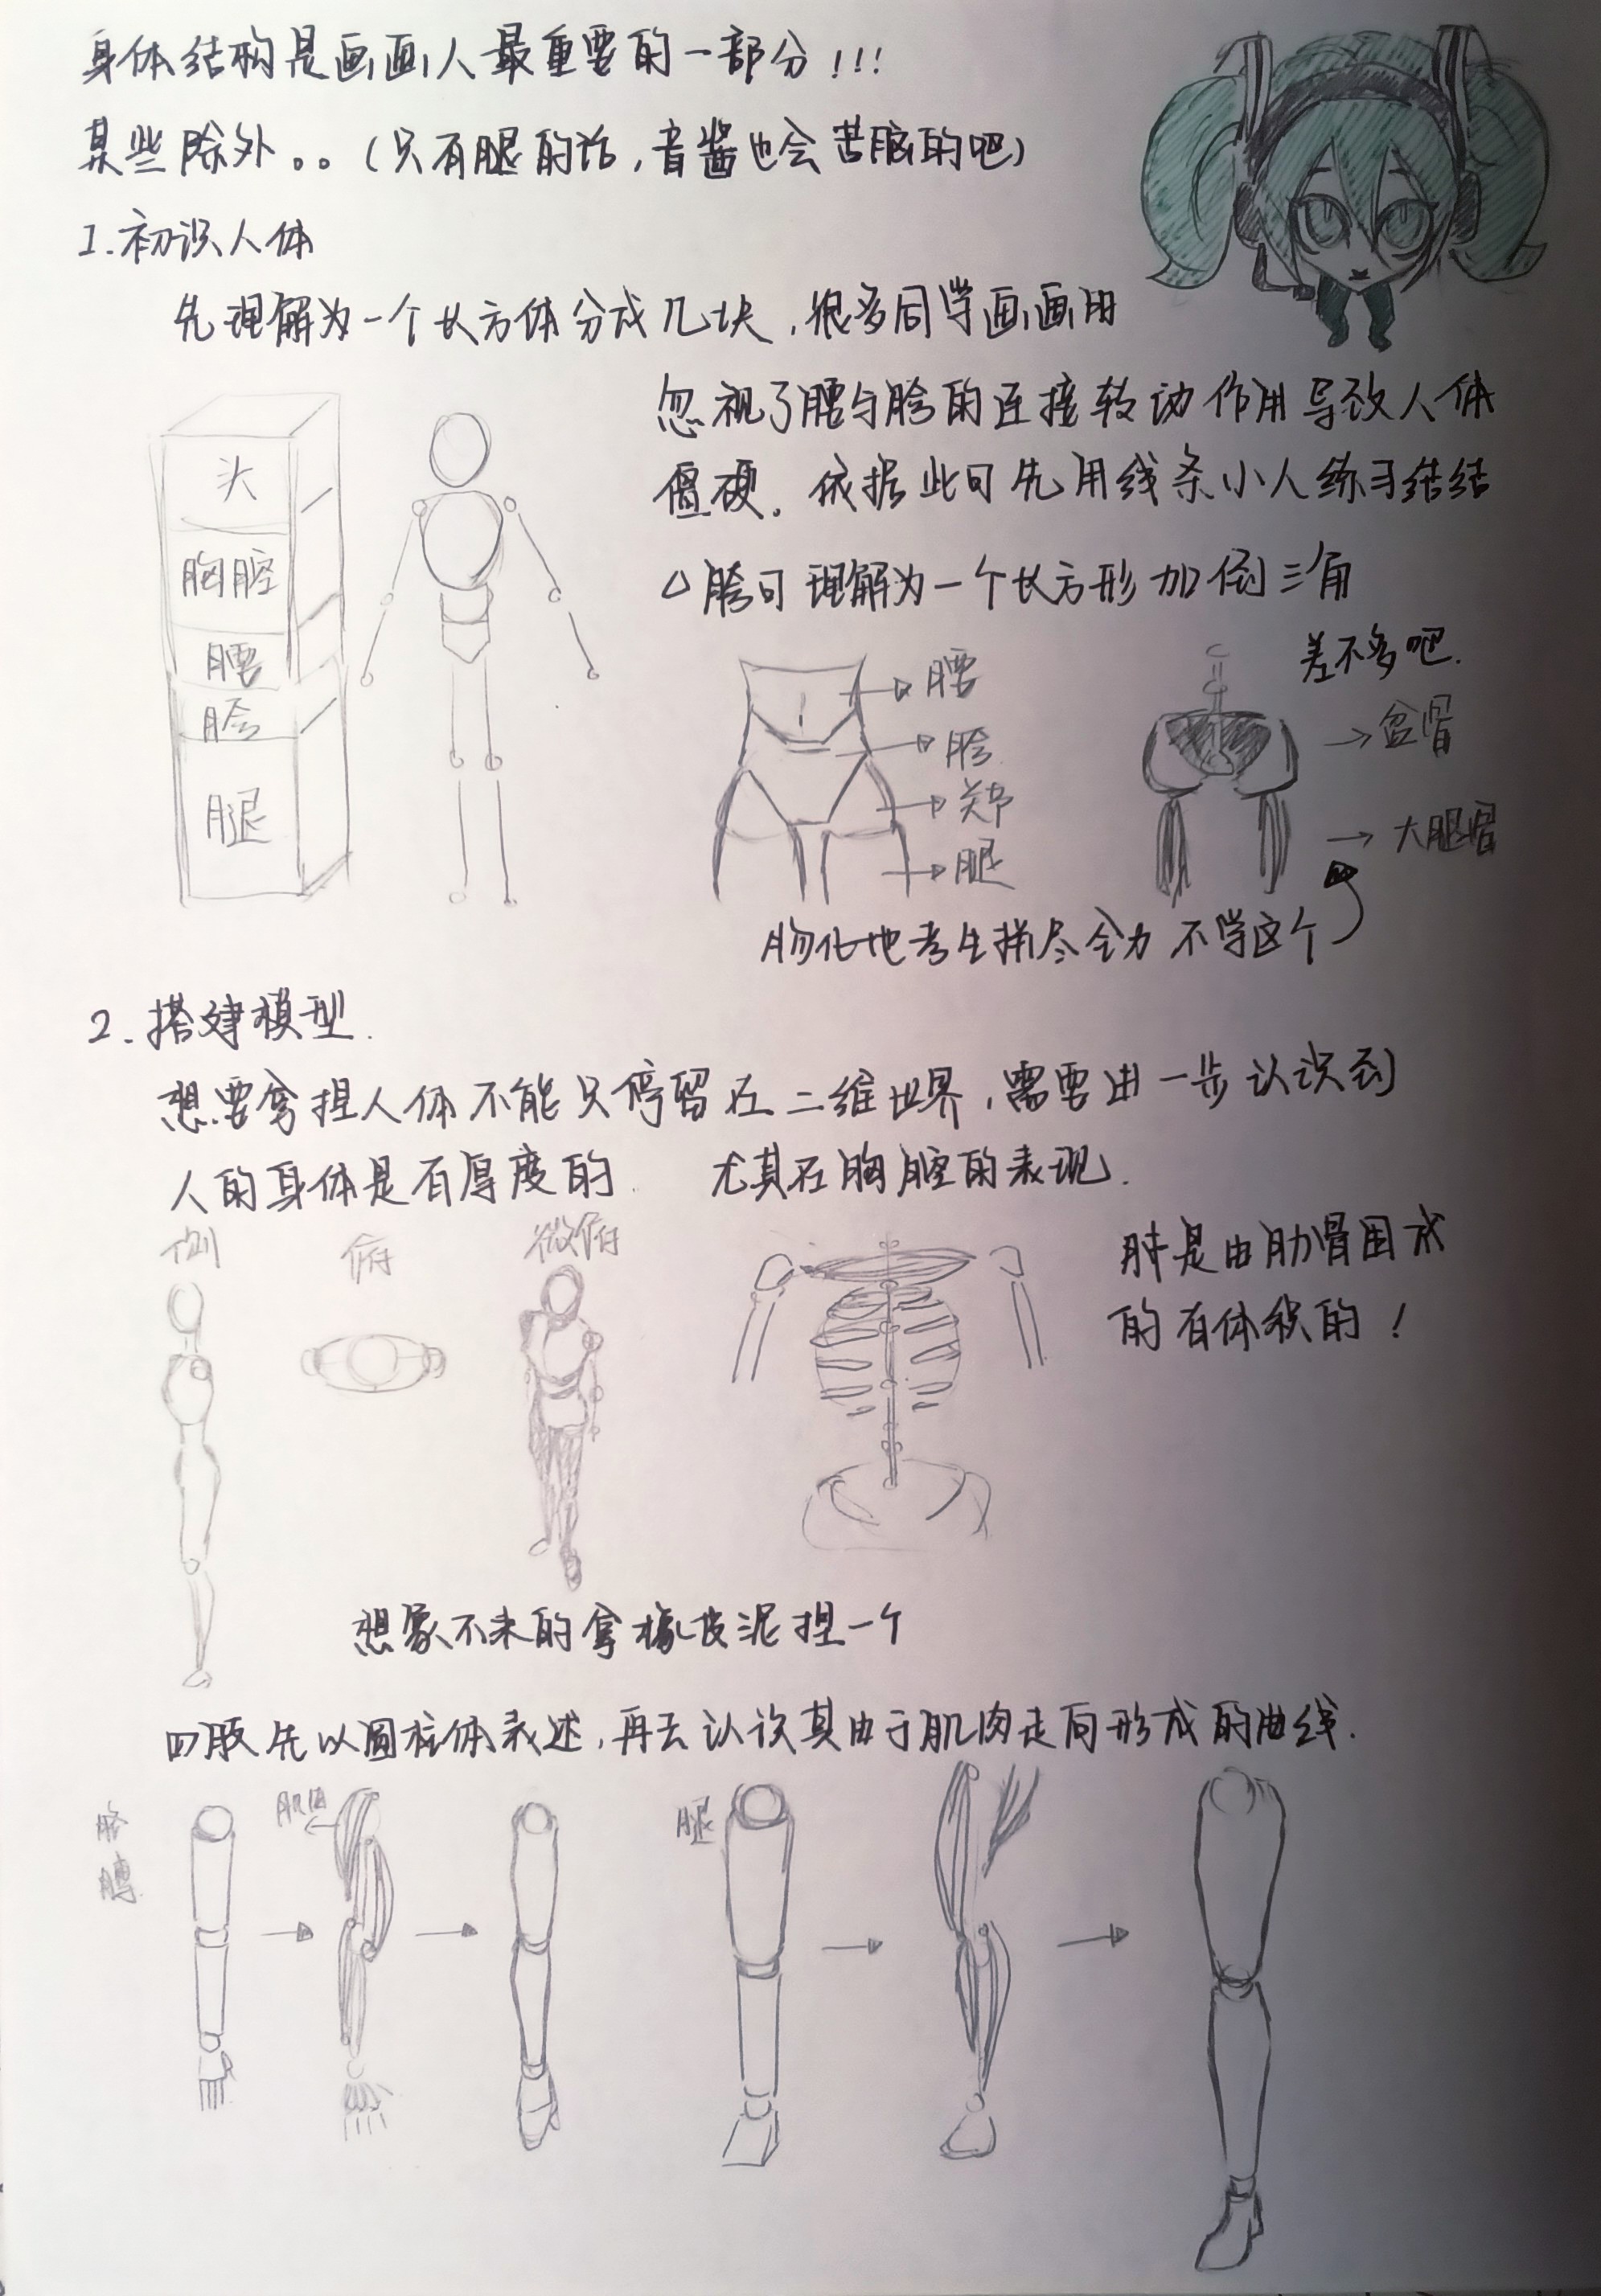 身体结构是画画人最重要的一部分!!!
某些除外。。(只有腿的话,音酱也会苦恼的吧)
1.初识人体
先理解为一个长方体分成几块,很多同学画画用
忽视了腰与胯的连接转动作用导致人体
僵硬。依据此可先用线条小人练习结结
头
胸腔
腰
胯
腿
△胯可理解为一个长方形加倒三角
差不多吧.
腰
胯
关节
腿
盆骨
大腿骨
物化地考生拼尽全力不学这个
2.搭建模型.
想要拿捏人体不能只停留在二维世界,需要进一步认识到
人的身体是有厚度的. 尤其在胸腔的表现.
侧
俯
微俯
是由肋骨围成
的有体积的!
想象不来的拿橡皮泥捏一个
四肢先以圆柱体表述,再去认识其由于肌肉走向形成的曲线.
胳膊
肌肉
腿